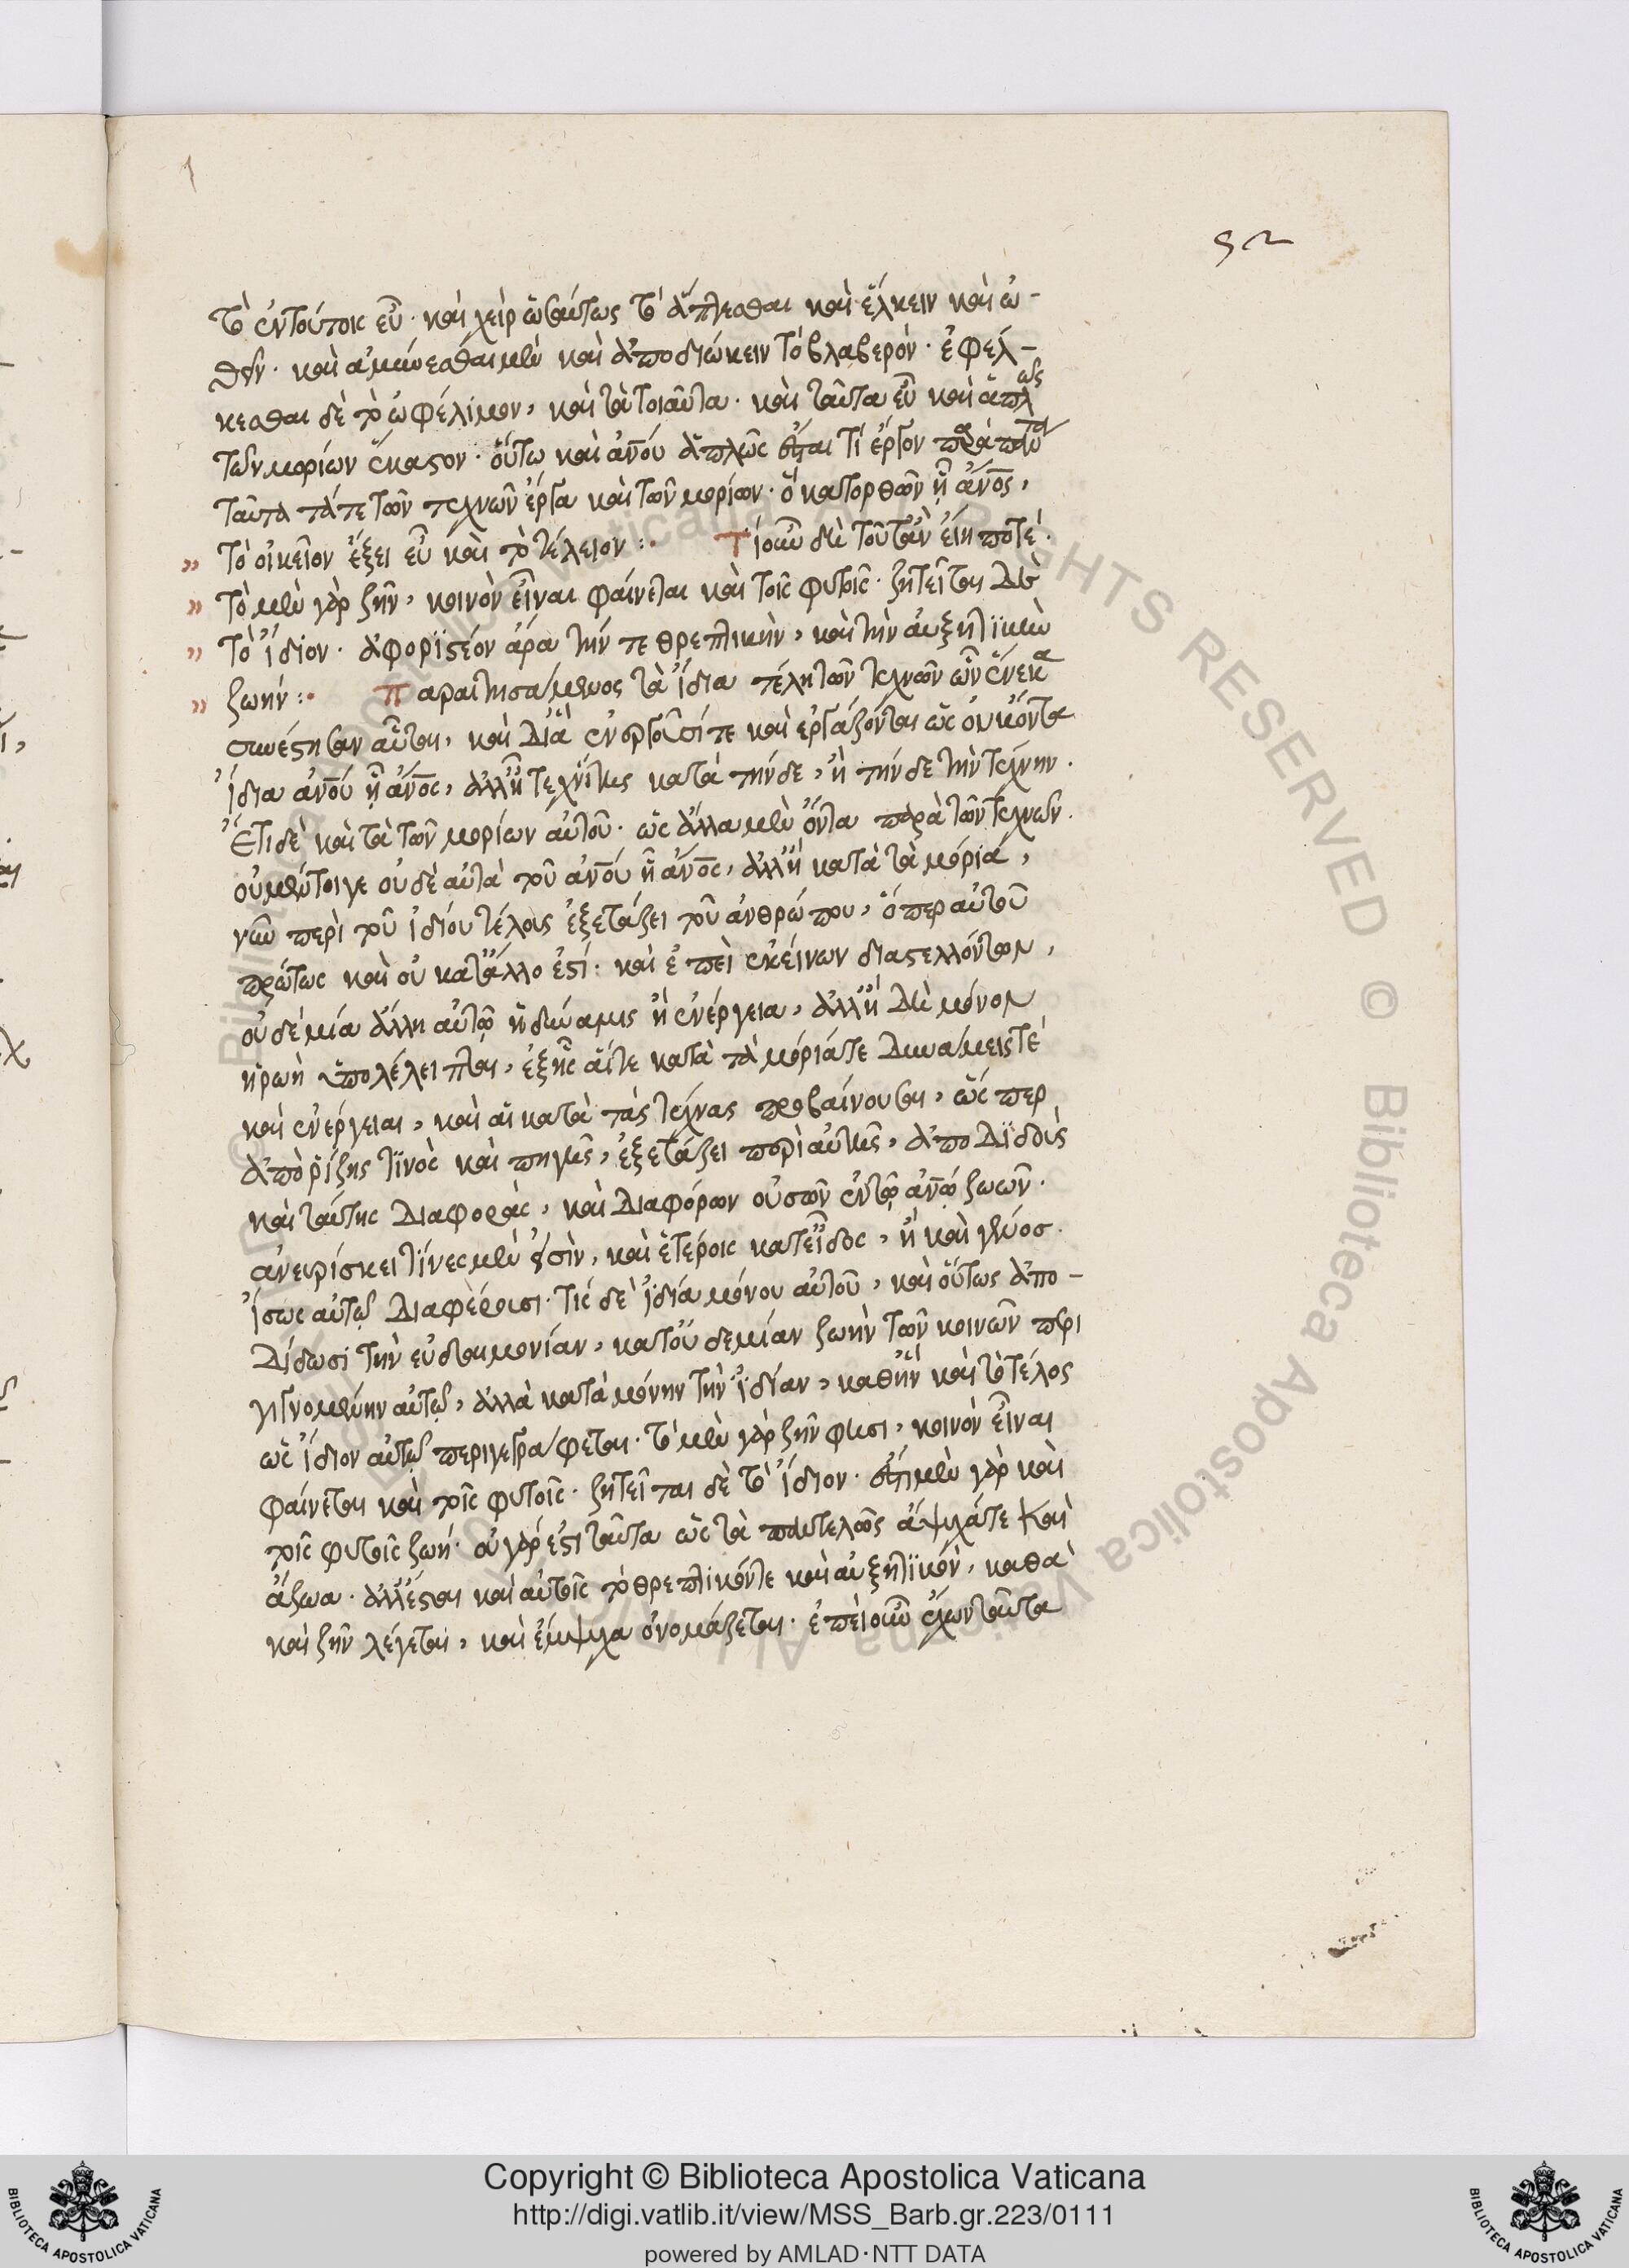 52
τὸ ἐν τούτοις εὖ· καὶ χεὶρ ὡσαύτως τὸ ἅπτεσθαι καὶ ἕλκειν καὶ ὠ-
θεῖν· καὶ ἀμύνεσθαι μὲν καὶ ἀποδιώκειν τὸ βλαβερόν· ἐφέλ-
κεσθαι δὲ τὸ ὠφέλιμον, καὶ τὰ τοιαῦτα· καὶ ταῦτα εὖ καὶ ἁπλῶς
τῶν μορίων ἕκαστον· οὕτω καὶ ἀνου ἁπλῶς ἔσται τί ἔργον παρὰ πάντα
ταῦτα τά τε τῶν τεχνῶν ἔργα καὶ τῶν μορίων· ὃ κατορθῶν ᾗ ἄνος,
» τὸ οἰκεῖον ἕξει εὖ καὶ τὸ τέλειον :· Τί οὖν δὴ τοῦτ' ἂν εἴη ποτέ·
» τὸ μὲν γὰρ ζῆν, κοινὸν εἶναι φαίνεται καὶ τοῖς φυτοῖς· ζητεῖται δὲ
» τὸ ἴδιον· ἀφοριστέον ἄρα τήν τε θρεπτικὴν, καὶ τὴν αὐξητικὴν
» ζωήν :· Παραιτησάμενος τὰ ἴδια τέλη τῶν τεχνῶν ὧν ἕνεκα
συνέστησαν αὗται, καὶ δι' ἃ ἐνεργοῦσί τε καὶ ἐργάζονται ὡς οὐκ ὄντα
ἴδια ἀνου ᾗ ἄνος, ἀλλ' ᾗ τεχνίτης κατὰ τήνδε, ἢ τήνδε τὴν τέχνην·
Ἔτι δὲ καὶ τὰ τῶν μορίων αὐτοῦ· ὡς ἄλλα μὲν ὄντα παρὰ τῶν τεχνῶν·
οὐ μέντοι γε οὐδὲ αὐτὰ τοῦ ἀνου ᾗ ἄνος, ἀλλ' ἢ κατὰ τὰ μόρια,
νῦν περὶ τοῦ ἰδίου τέλους ἐξετάζει τοῦ ἀνθρώπου, ὅπερ αὐτοῦ
πρώτως καὶ οὐ κατ' ἄλλο ἐστί· καὶ ἐπεὶ ἐκείνων διαστελλόντων,
οὐδεμία ἄλλη αὐτῷ ἢ δύναμις ἢ ἐνέργεια, ἀλλ' ἢ δὴ μόνον
ἡ ζωὴ ὑπολέλειπται, ἐξ ἧς αἵ τε κατὰ τὰ μόριά τε δυνάμεις τὲ
καὶ ἐνέργειαι, καὶ αἱ κατὰ τὰς τέχνας προβαίνουσαι, ὥσπερ
ἀπὸ ῥίζης τινὸς καὶ πηγῆς, ἐξετάζει περὶ αὐτῆς, ἀποδιδοὺς
καὶ ταύτης διαφοράς, καὶ διαφόρων οὐσῶν ἐν τῷ ἀνῳ ζωῶν·
ἀνευρίσκει τίνες μὲν εἰσὶν, καὶ ἑτέροις κατ' εἶδος, ἢ καὶ γένος·
ἴσως αὐτῷ διαφέρουσι· τίς δὲ ἰδία μόνου αὐτοῦ, καὶ οὕτως ἀπο-
δίδωσι τὴν εὐδαιμονίαν, κατ' οὐδεμίαν ζωὴν τῶν κοινῶν περι
γιγνομένην αὐτῷ, ἀλλὰ κατὰ μόνην τὴν ἰδίαν, καθ' ἣν καὶ τὸ τέλος
ὡς ἴδιον αὐτῷ περιγεγράφεται· τὸ μὲν γὰρ ζῆν φησι, κοινὸν εἶναι
φαίνεται καὶ τοῖς φυτοῖς· ζητεῖται δὲ τὸ ἴδιον· ἔστι μὲν γὰρ καὶ
τοῖς φυτοῖς ζωή· οὐ γάρ ἐστι ταῦτα ὡς τὰ παντελῶς ἄψυχά τε καὶ
ἄζωα· ἀλλ' ἔστι καὶ αὐτοῖς τὸ θρεπτικόν τε καὶ αὐξητικόν, καθ' ἃ
καὶ ζῆν λέγεται, καὶ ἔμψυχα ὀνομάζεται· ἐπεὶ οὖν ἔχων ταῦτα
Copyright © Biblioteca Apostolica Vaticana
http://digi.vatlib.it/view/MSS_Barb.gr.223/0111
powered by AMLAD·NTT DATA